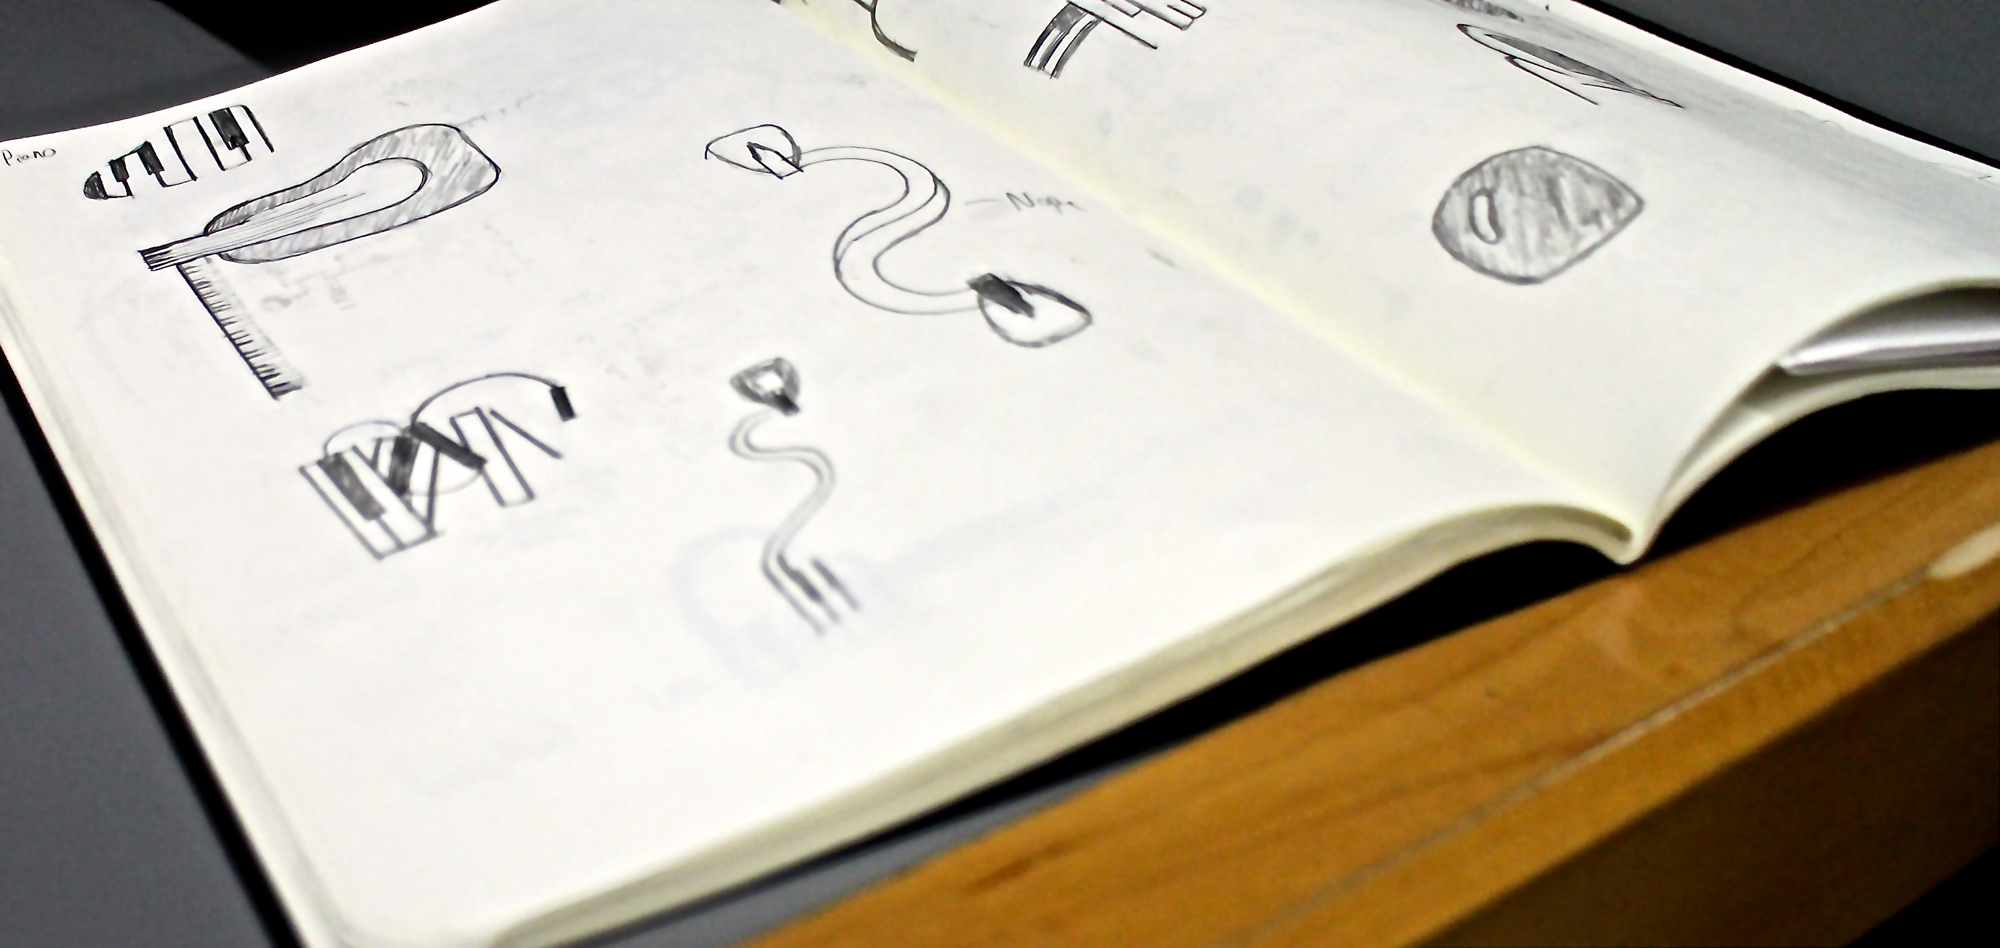 Piano
– Nope